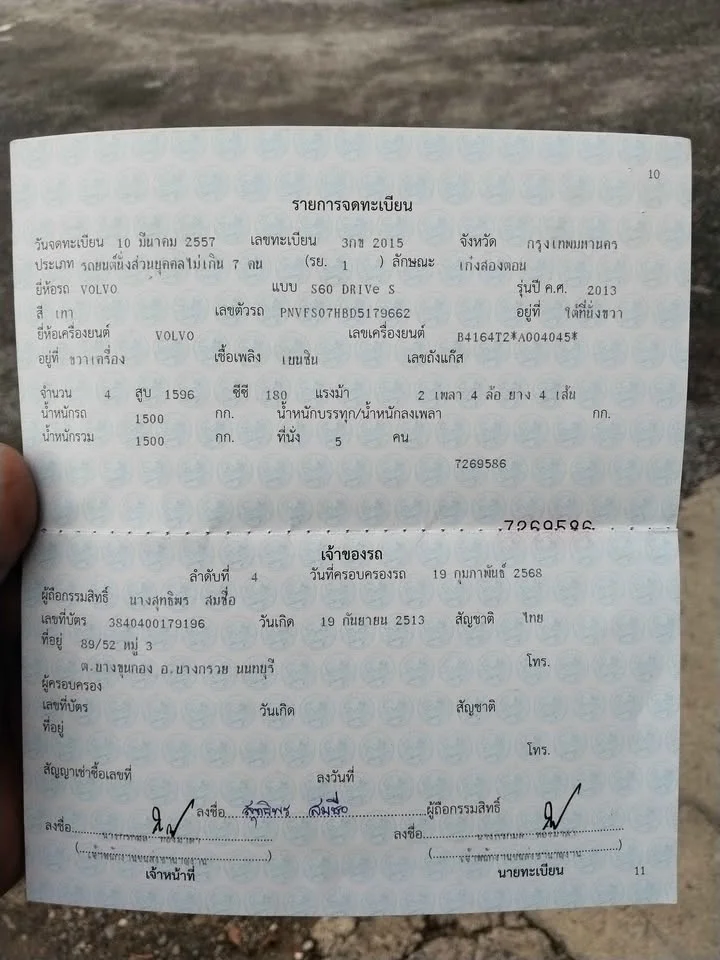 10
รายการจดทะเบียน
วันจดทะเบียน 10 มีนาคม 2557 เลขทะเบียน 3กข 2015 จังหวัด กรุงเทพมหานคร
ประเภท รถยนต์นั่งส่วนบุคคลไม่เกิน 7 คน (รย. 1 ) ลักษณะ เก๋งสองตอน
ยี่ห้อรถ VOLVO แบบ S60 DRIVe S รุ่นปี ค.ศ. 2013
สี เทา เลขตัวรถ PNVFS07HBD5179662 อยู่ที่ ใต้ที่นั่งขวา
ยี่ห้อเครื่องยนต์ VOLVO เลขเครื่องยนต์ B4164T2*A004045*
อยู่ที่ ขวาเครื่อง เชื้อเพลิง เบนซิน เลขถังแก๊ส
จำนวน 4 สูบ 1596 ซีซี 180 แรงม้า 2 เพลา 4 ล้อ ยาง 4 เส้น
น้ำหนักรถ 1500 กก. น้ำหนักบรรทุก/น้ำหนักลงเพลา กก.
น้ำหนักรวม 1500 กก. ที่นั่ง 5 คน
7269586
7269586
เจ้าของรถ
ลำดับที่ 4 วันที่ครอบครองรถ 19 กุมภาพันธ์ 2568
ผู้ถือกรรมสิทธิ์ นางสุทธิพร สมชื่อ
เลขที่บัตร 3840400179196 วันเกิด 19 กันยายน 2513 สัญชาติ ไทย
ที่อยู่ 89/52 หมู่ 3
ต.บางขุนกอง อ.บางกรวย นนทบุรี โทร.
ผู้ครอบครอง
เลขที่บัตร วันเกิด สัญชาติ
ที่อยู่
โทร.
สัญญาเช่าซื้อเลขที่ ลงวันที่
ลงชื่อ สุทธิพร สมชื่อ ผู้ถือกรรมสิทธิ์
ลงชื่อ ลงชื่อ
(เจ้าพนักงานขนส่งชำนาญงาน) (เจ้าพนักงานขนส่งชำนาญงาน)
เจ้าหน้าที่ นายทะเบียน 11